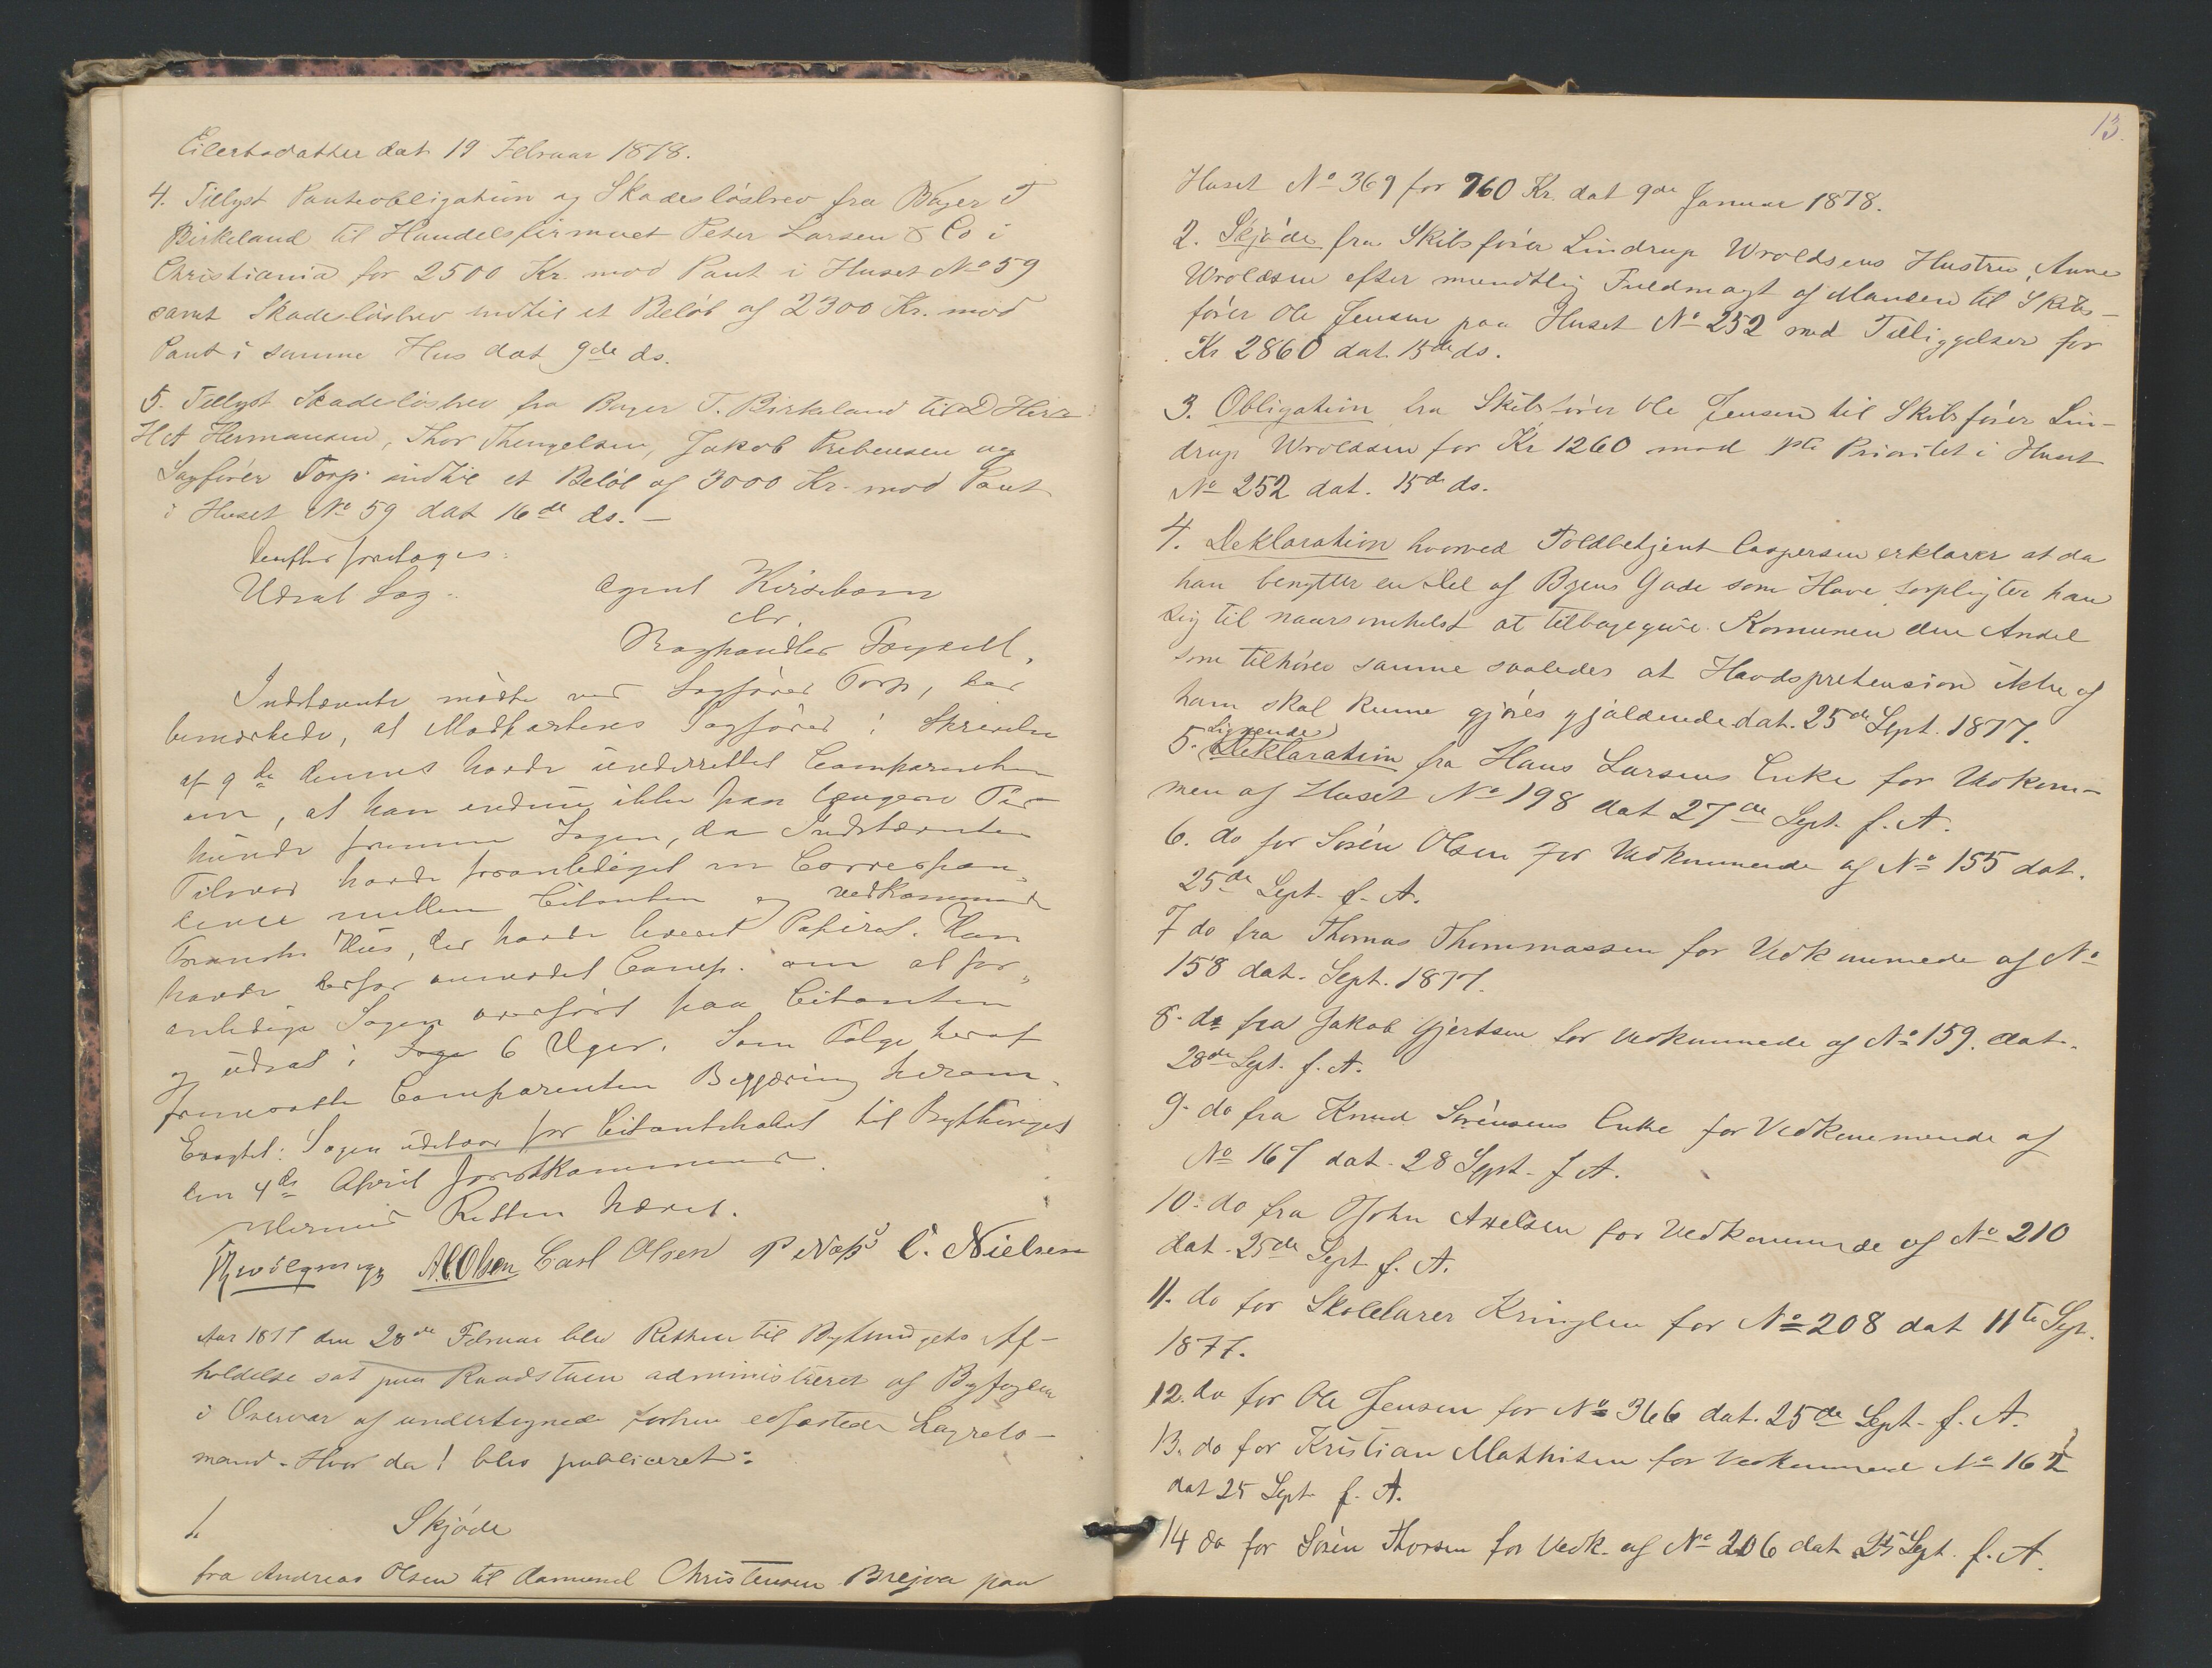 Eilertsdatter dat 19 Februar 1878.
4. Tillyst Panteobligation og Skadesløsbrev fra Bager T
Birkeland til Handelsfirmaet Peter Larsen & Co i
Christiania for 2500 Kr. mod Pant i Huset No 59
samt Skadesløsbrev indtil et Beløb af 2300 Kr. mod
Pant i samme Hus dat 9de ds.
5. Tillyst Skadesløsbrev fra Bager T. Birkeland til D Hrr
H A Hermansen, Thor Thengelsen, Jakob Prebensen og
Sagfører Torp indtil et Beløb af 3000 Kr. mod Pant
i Huset No 59 dat 16de ds. —
Derefter foretages:
Udsat Sag:
Agent Kirsebom
ctr.
Braghandler Foyn
Indstævnte mødte ved Sagfører Torp, der
bemærkede, at Modpartens Sagfører i Skrivelse
af 9de dennes havde underrettet Comparenten
om, at han endnu ikke paa længere Tid
kunde fremme Sagen, da Indstævntes
Tilsvar havde foranlediget en Correspon-
dence mellem Citanten og vedkommende
Franske Hus, der havde leveret Papiret. Han
havde derfor anmodet Comp. om at for-
anledige Sagen overført paa Citanten
og udsat i Sage 6 Uger. Som Følge heraf
fremsatte Comparenten Begjæring herom.
Eragtet: Sagen udstaar for Citantskabet til Bythinget
den 4de April førstkommende.
Hermed Retten hævet.
A. C. Olsen Carl Olsen P Næss C. Nielsen
Aar 1877 den 28de Februar blev Retten til Bythingets Af-
holdelse sat paa Raadstuen administreret af Byfogden
i Overvær af undertegnede forhen edfæstede Lagretes-
mænd. Hvor da! blev publiceret:
1. Skjøde
fra Andreas Olsen til Aanund Christensen Brejva paa
13.
Huset No 369 for 760 Kr. dat 9de Januar 1878.
2. Skjøde fra Skibsfører Lindrup Wroldsens Hustru, Anne
Wroldsen efter mundtlig Fuldmagt af Manden til Skibs-
fører Ole Jensen paa Huset No 252 med Tilliggelser for
Kr 2860 dat. 15de ds.
3. Obligation fra Skibsfører Ole Jensen til Skibsfører Lin-
drup Wroldsen for Kr 1260 mod 1ste Prioritet i Huset
No 252 dat. 15de ds.
4. Deklaration hvorved Toldbetjent Caspersen erklærer at da
han benytter en Del af Byens Gade som Have forpligter han
sig til naarsomhelst at tilbagegive Komunen den Andel
som tilhører samme saaledes at Hævdsprætension ikke af
ham skal kunne gjøres gjældende dat. 25de Sept. 1877.
Lignende
5. Deklaration fra Hans Larsens Enke for Vedkom-
men af Huset No 198 dat 27de Sept. f. A.
6. do for Søren Olsen for Vedkommende af No 155 dat.
25de Sept. f. A.
7 do fra Thomas Thommassen for Vedkommede af No
158 dat. Sept. 1877.
8. do fra Jakob Gjertsen for Vedkommede af No 159. dat.
28de Sept. f. A.
9. do fra Knud Sørensens Enke for Vedkommende af
No 167 dat. 28 Sept. f A.
10. do fra John Axelsen for Vedkommende af No 210
dat. 25de Sept f. A.
11. do for Skolelærer Kringlen for No 208 dat 11te Sept.
1877.
12. do for Ole Jensen for No 366 dat. 25de Sept. f. A.
13. do for Kristian Mathisen for Vedkommend No 162
dat 25 Sept f. A.
14 do for Søren Thorsen for Vedk. af No 206 dat 25 Sept. f. A.